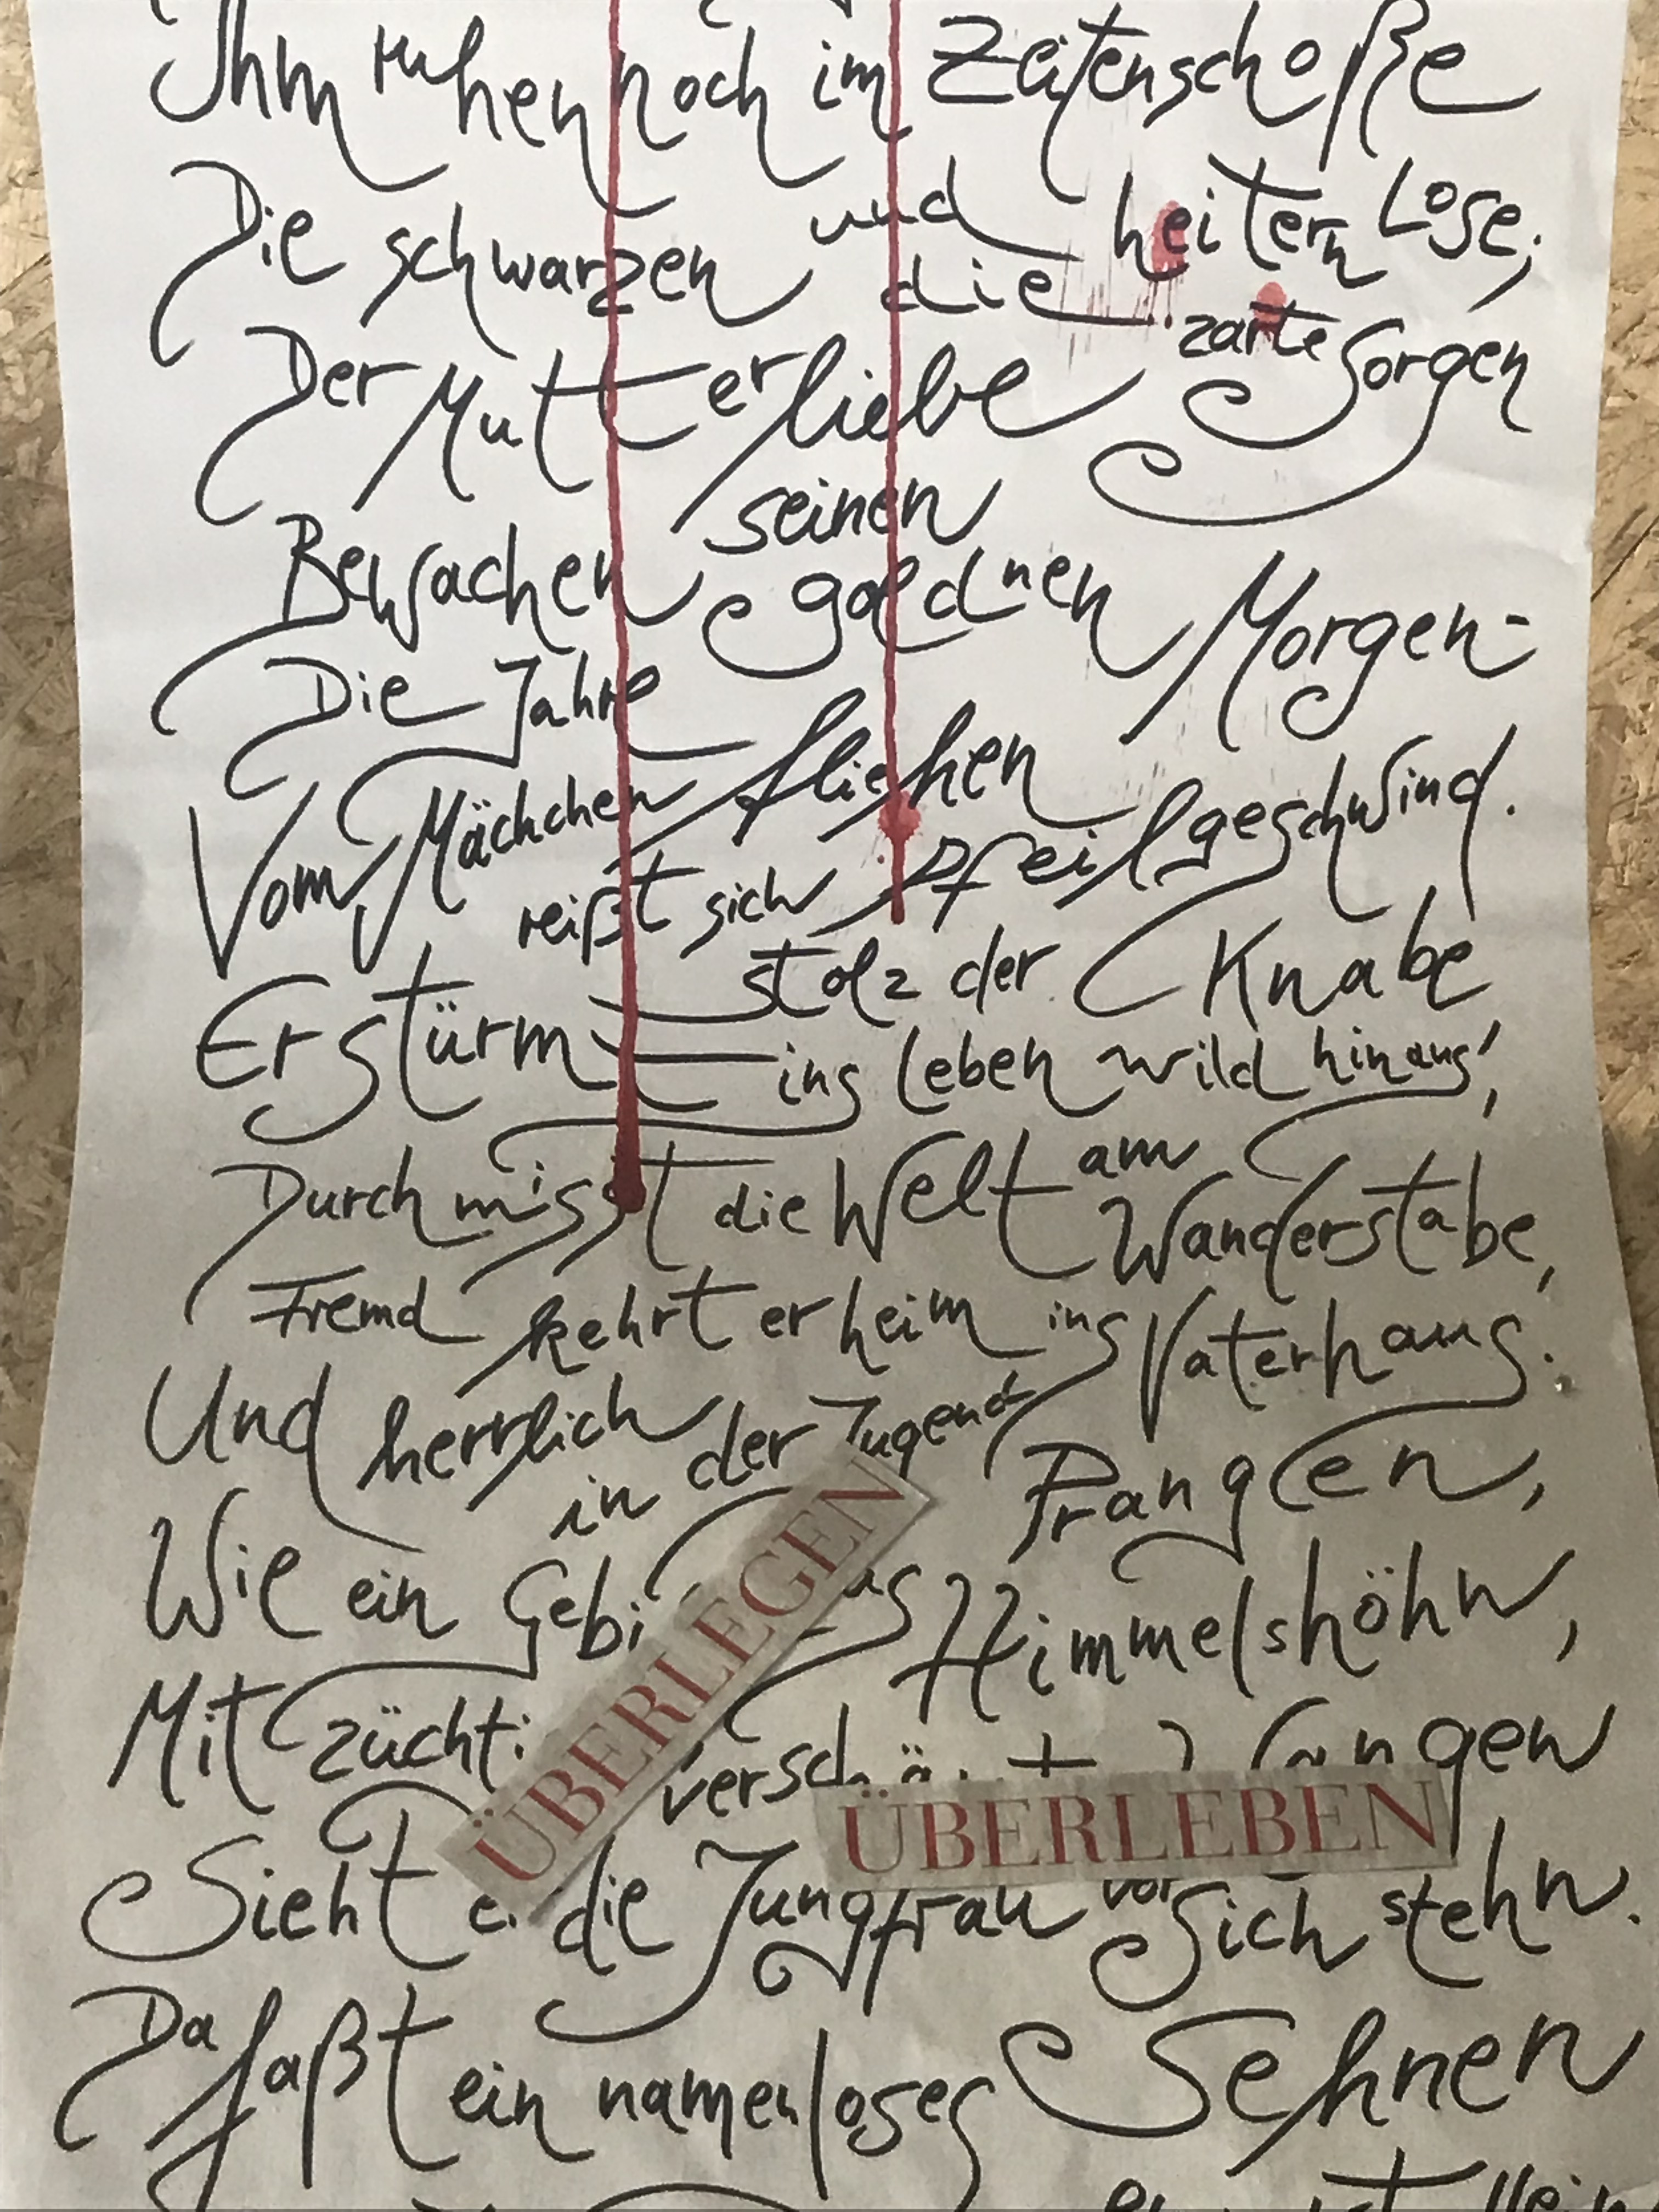 Ihm ruhen noch im Zeitenschoße
Die schwarzen und die heitern Lose;
Der Mutterliebe zarte Sorgen
Bewachen seinen goldnen Morgen-
Die Jahre fliehen pfeilgeschwind.
Vom Mächchen reißt sich stolz der Knabe
Er stürmt ins Leben wild hinaus,
Durchmisst die Welt am Wanderstabe,
Fremd kehrt er heim ins Vaterhaus.
Und herrlich in der Jugend Prangen,
Wie ein Himmelshöhn,
Mit
Sieht die Jungfrau vor sich stehn.
ÜBERLEGEN
ÜBERLEBEN
Da faßt ein namenloses Sehnen